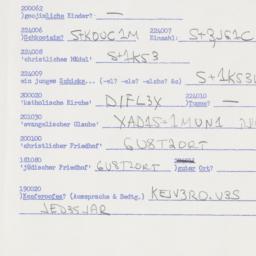 200062
)goejim)liche Kinder? —
224006 224007
)Schkootzim? S+KOUC1M Einzahl: S+3JG1C
224008
'christliches Mädel' S+1KS3
224009
ein junges Schicks... (-el? -els? -elche? &c) S+1KS3
200020 224010
'katholische Kirche' DIFL3X )Tunne? —
201030
'evangelischer Glaube' XAD15=1MUN1
200100
'christlicher Friedhof' GU8T2ORT
181080
'jüdischer Friedhof' GU8T2ORT )guter Ort?
190020
)Kenferoofes? (Aussprache & Bedtg.) KEJV3RO.V3S
JED35JAR